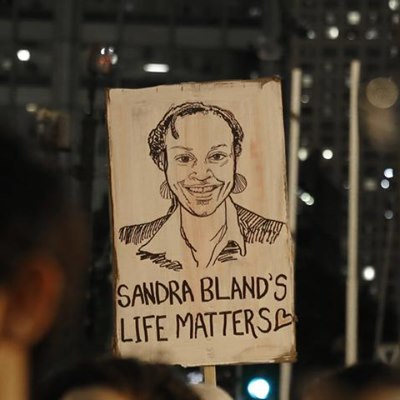 SANDRA BLAND'S
LIFE MATTERS